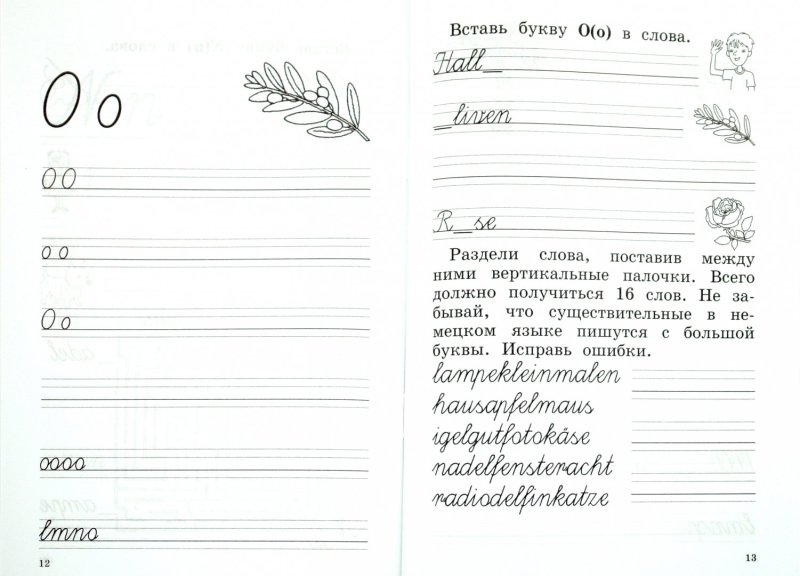 Oo
OO
oo
Oo
oooo
lmno
12
Вставь букву О(о) в слова.
Hall_
_liven
R_se
Раздели слова, поставив между
ними вертикальные палочки. Всего
должно получиться 16 слов. Не за-
бывай, что существительные в не-
мецком языке пишутся с большой
буквы. Исправь ошибки.
lampekleinmalen
hausapfelmaus
igelgutfotokäse
nadelfensteracht
radiodelfinkatze
13